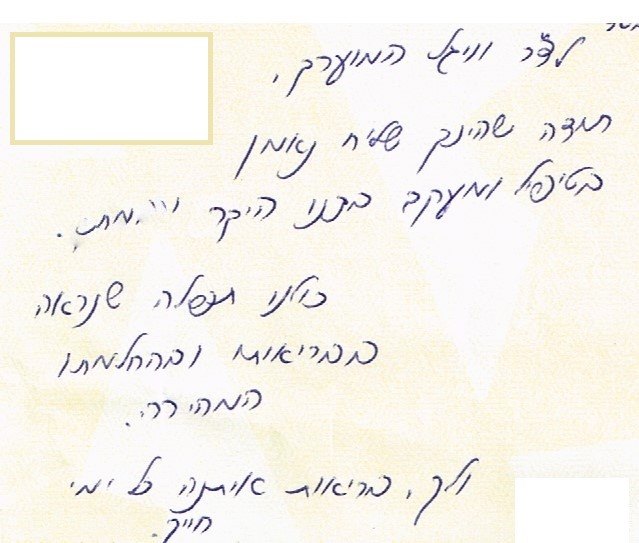 לד״ר ווינגל המוערך,
תודה שהינך שליח נאמן
בטיפול ומעקב בבננו היקר
כולנו תפילה שנראה
בבריאותו ובהחלמתו
המהירה.
ולך, בריאות איתנה כל ימי
חייך.